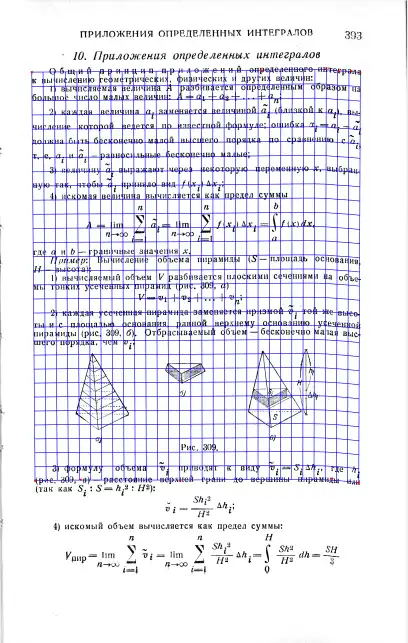 ПРИЛОЖЕНИЯ ОПРЕДЕЛЕННЫХ ИНТЕГРАЛОВ 393
10. Приложения определенных интегралов
Общий принцип приложений определенного интеграла
к вычислению геометрических, физических и других величин:
1) вычисляемая величина A разбивается определенным образом на
большое число малых величин: A = a₁ + a₂ + . . . + aₙ;
2) каждая величина aᵢ заменяется величиной ãᵢ (близкой к aᵢ), вы-
числение которой ведется по известной формуле; ошибка αᵢ = aᵢ − ãᵢ
должна быть бесконечно малой высшего порядка по сравнению с ãᵢ,
т. е. aᵢ и ãᵢ — равносильные бесконечно малые;
3) величину ãᵢ выражают через некоторую переменную x, выбран-
ную так, чтобы ãᵢ приняло вид f(xᵢ) Δxᵢ;
4) искомая величина вычисляется как предел суммы
n n b
A = lim ∑ ãᵢ = lim ∑ f(xᵢ) Δxᵢ = ∫ f(x) dx,
n→∞ i=1 n→∞ i=1 a
где a и b — граничные значения x.
Пример. Вычисление объема пирамиды (S — площадь основания,
H — высота):
1) вычисляемый объем V разбивается плоскими сечениями на объе-
мы тонких усеченных пирамид (рис. 309, а)
V = v₁ + v₂ + . . . + vₙ;
2) каждая усеченная пирамида заменяется призмой ṽᵢ той же высо-
ты и с площадью основания, равной верхнему основанию усеченной
пирамиды (рис. 309, б). Отбрасываемый объем — бесконечно малая выс-
шего порядка, чем vᵢ;
а) б) в)
S H h Δhᵢ S
Рис. 309.
3) формулу объема ṽᵢ приводят к виду ṽᵢ = Sᵢ Δhᵢ, где hᵢ
(рис. 309, в) — расстояние верхней грани до вершины пирамиды или
(так как Sᵢ : S = hᵢ² : H²):
ṽᵢ = Shᵢ²/H² Δhᵢ;
4) искомый объем вычисляется как предел суммы:
n n H
Vпир = lim ∑ ṽᵢ = lim ∑ Shᵢ²/H² Δhᵢ = ∫ Sh²/H² dh = SH/3
n→∞ i=1 n→∞ i=1 0